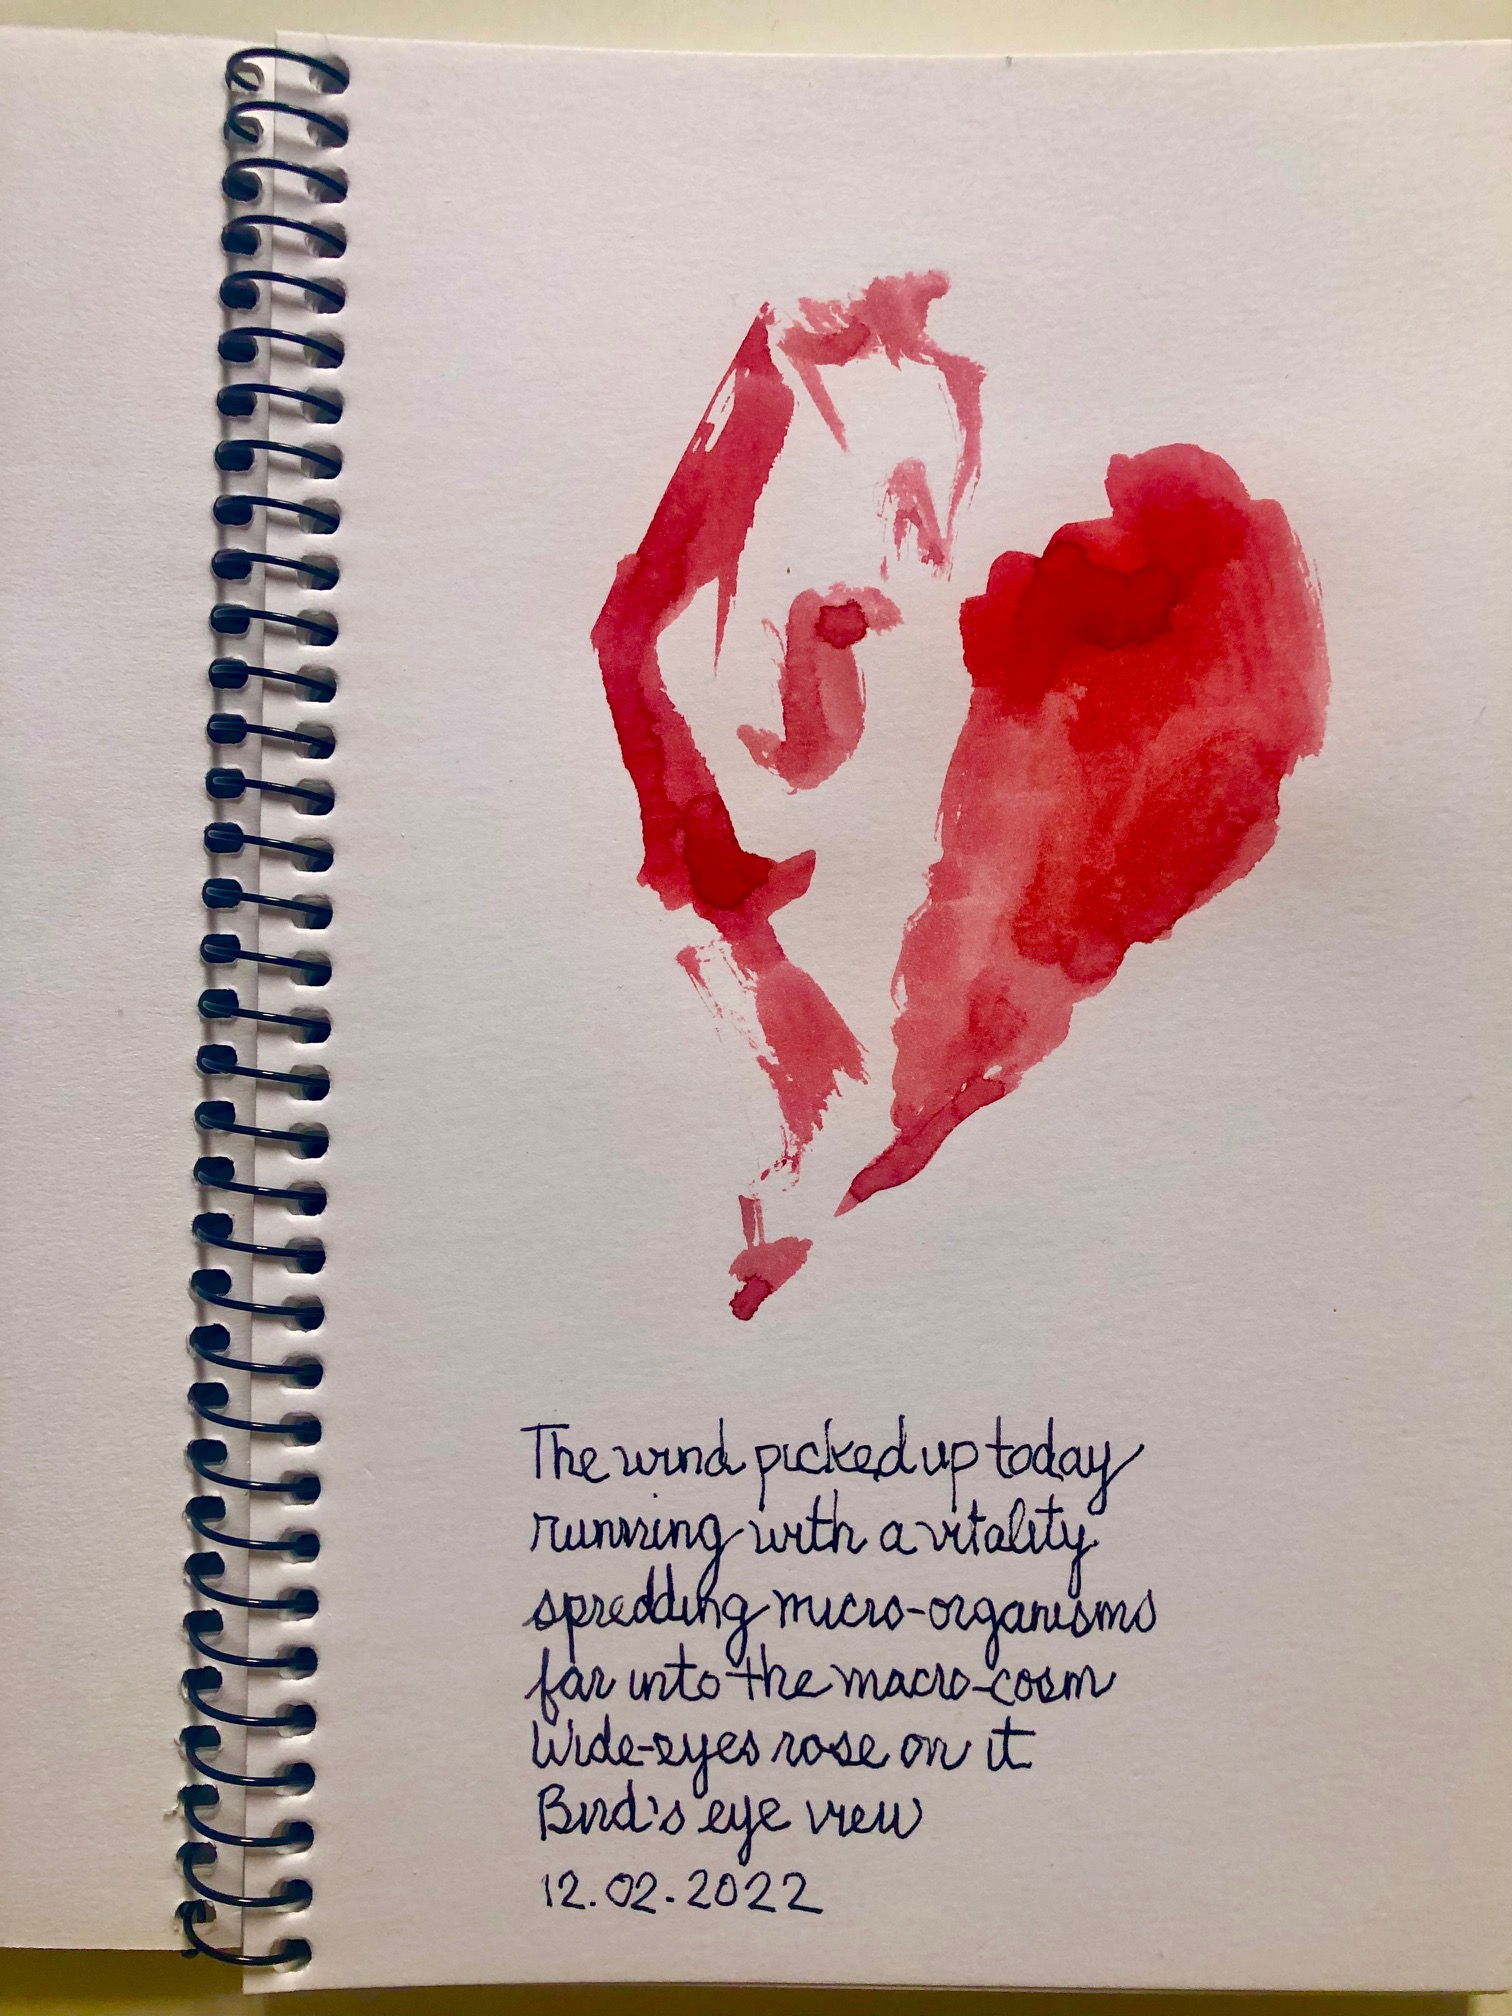 The wind picked up today
running with a vitality
spredding micro-organisms
far into the macro-cosm
Wide-eyes rose on it
Bird's eye view
12.02.2022